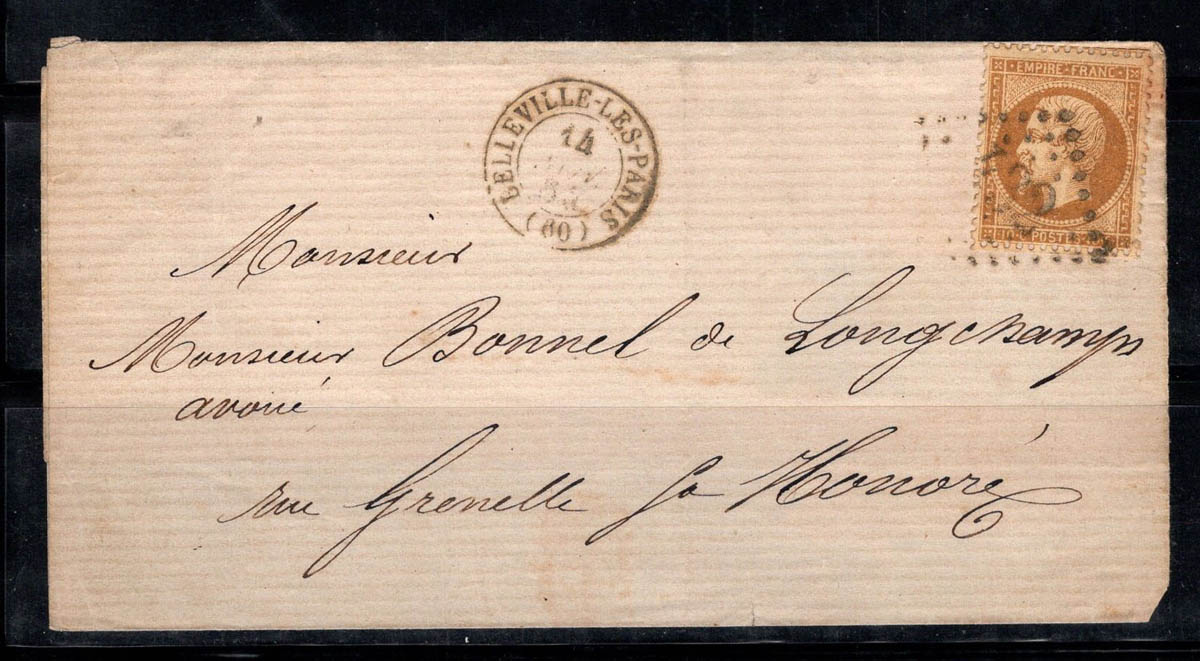 EMPIRE·FRANC·
BELLEVILLE-LES-PARIS
14
(60)
POST
Monsieur
Monsieur Bonnel de Longchamps
avoué
rue Grenelle St Honoré